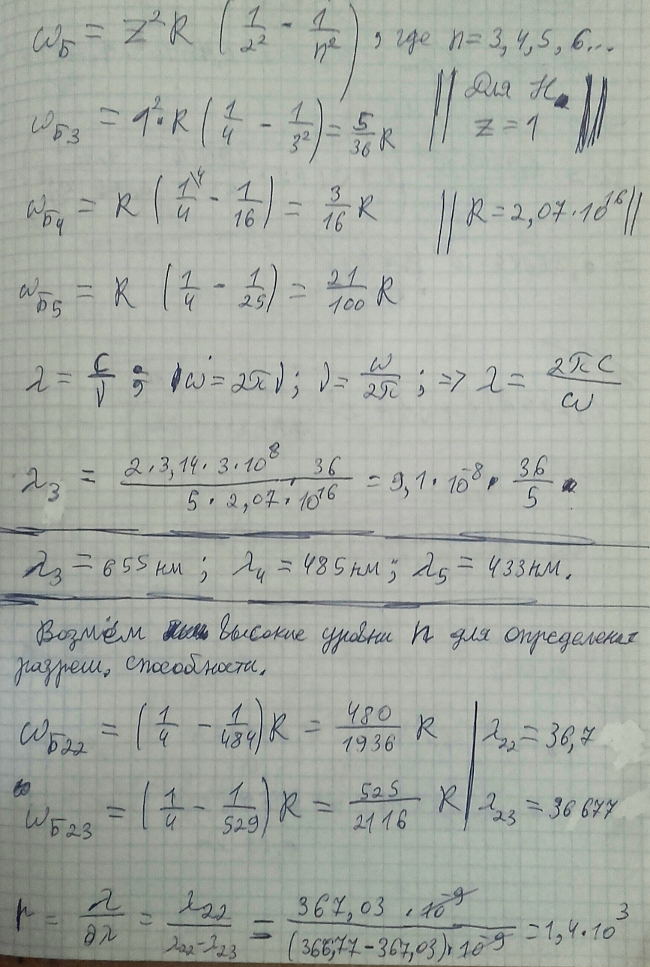 ω_Б = Z² R (1/2² - 1/n²), где n = 3, 4, 5, 6...
ω_Б3 = 1² · R (1/4 - 1/3²) = 5/36 R || Для H Z = 1 ||
ω_Б4 = R (1/4 - 1/16) = 3/16 R || R = 2,07 · 10^16 ||
ω_Б5 = R (1/4 - 1/25) = 21/100 R
λ = c/ν ; ω = 2πν; ν = ω/2π ; => λ = 2πc/ω
λ₃ = 2 · 3,14 · 3 · 10⁸ · 36 / 5 · 2,07 · 10^16 = 9,1 · 10^-8 · 36/5
λ₃ = 655 нм ; λ₄ = 485 нм ; λ₅ = 433 нм.
Возмём высокие уровни n для определения
разреш. способности.
ω_Б22 = (1/4 - 1/484) R = 480/1936 R | λ₂₂ = 36,7
ω_Б23 = (1/4 - 1/529) R = 525/2116 R | λ₂₃ = 36677
r = λ/∂λ = λ₂₂/λ₂₂-λ₂₃ = 367,03 · 10^-9 / (366,77 - 367,03) · 10^-9 = 1,4 · 10³